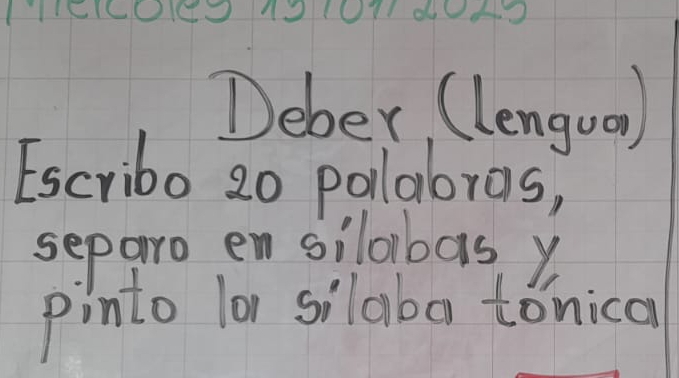 Miércoles 15/01/2025
Deber (lengua)
Escribo 20 palabras,
separo en sílabas y
pinto la sílaba tónica